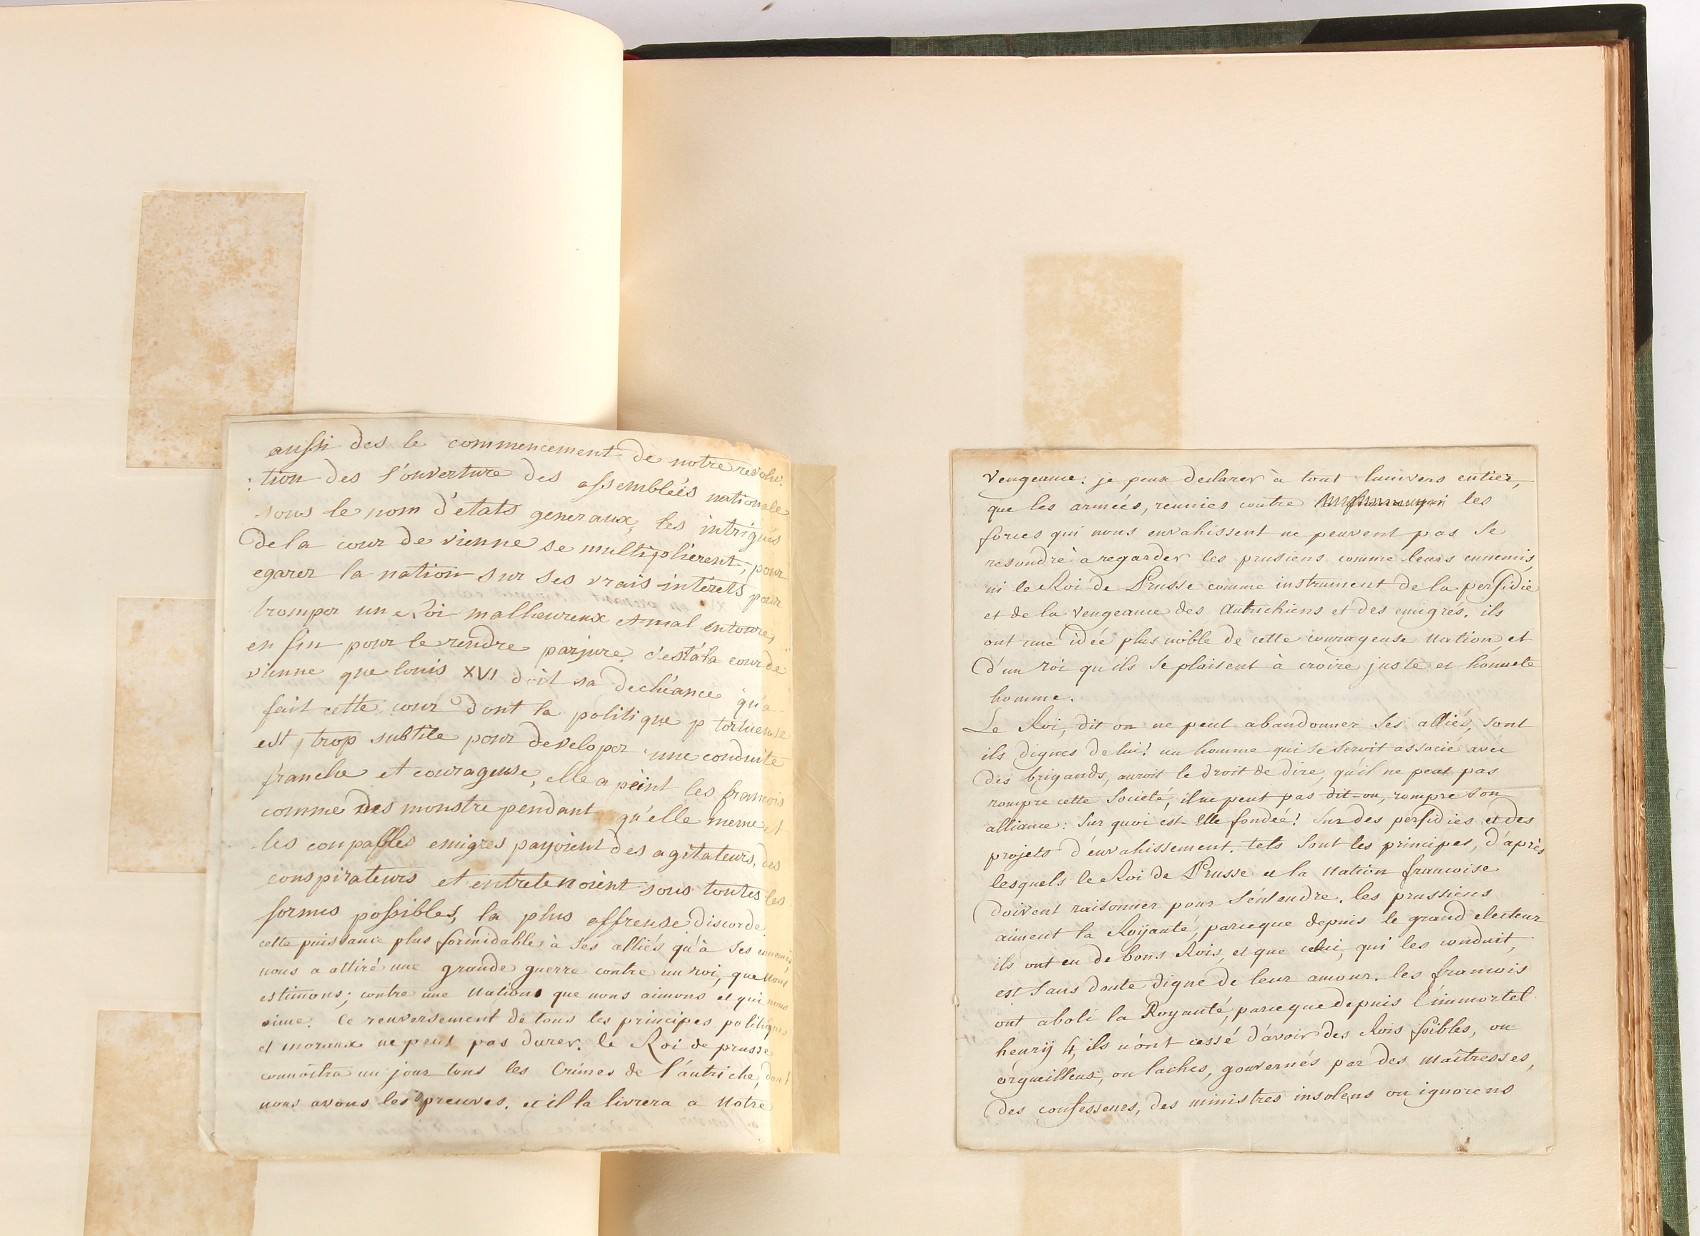 aussi des le commencement de notre revolu
:tion des l'ouverture des assemblées nationale
sous le nom d'etats generaux, les intrigues
De la cour de vienne se multiplierent, pour
egarer la nation sur ses vrais interets pour
tromper un Roi malheureux et mal entouré,
en fin pour le rendre parjure. c'est à la cour de
vienne que louis XVI doit sa dechéance qu'a
fait cette cour dont la politique tortueuse
est trop subtile pour developer une conduite
franche et courageuse, elle a peint les francois
comme des monstre pendant qu'elle meme et
les coupables emigrés payoient des agitateurs, des
conspirateurs et entretenoient sous toutes les
formes possibles, la plus affreuse discorde.
cette puissance plus formidable à ses alliés qu'à ses ennemis,
nous a attiré une grande guerre contre un roi, que nous
estimons; contre une Nation que nous aimons et qui nous
aime. ce renversement de tous les principes politiques
et moraux ne peut pas durer. le Roi de prusse
connoitra un jour tous les Crimes de l'autriche, dont
nous avons les preuves. et il la livrera a Notre
vengeance. je peux declarer à tout l'univers entier,
que les armées, reunies contre les
forces qui nous envahissent ne peuvent pas se
resoudre à regarder les prusiens comme leurs ennemis,
ni le Roi de Prusse comme instrument de la perfidie
et de la vengeance des Autrichiens et des emigrés. ils
ont une idée plus noble de cette courageuse Nation et
d'un roi qu'ils se plaisent à croire juste et honnete
homme.
Le Roi, dit on ne peut abandonner ses alliés, sont
ils dignes de lui! un homme qui se seroit associé avec
des brigands, auroit le droit de dire, qu'il ne peut pas
rompre cette Societé, il ne peut pas dit-on, rompre son
alliance: sur quoi est Elle fondée! sur des perfidies et des
projets d'envahissement. tels sont les principes, d'après
lesquels le Roi de Prusse et la Nation francoise
doivent raisonner pour s'entendre. les prussiens
aiment la Royauté, parceque depuis le grand electeur
ils ont eu de bons Rois, et que celui, qui les conduit,
est sans doute digne de leur amour. les francois
ont aboli la Royauté, parceque depuis l'immortel
henry 4, ils n'ont cessé d'avoir des Rois foibles, ou
orgueilleux, ou laches, gouvernés par des maîtresses,
des confesseurs, des ministres insolens ou ignorens